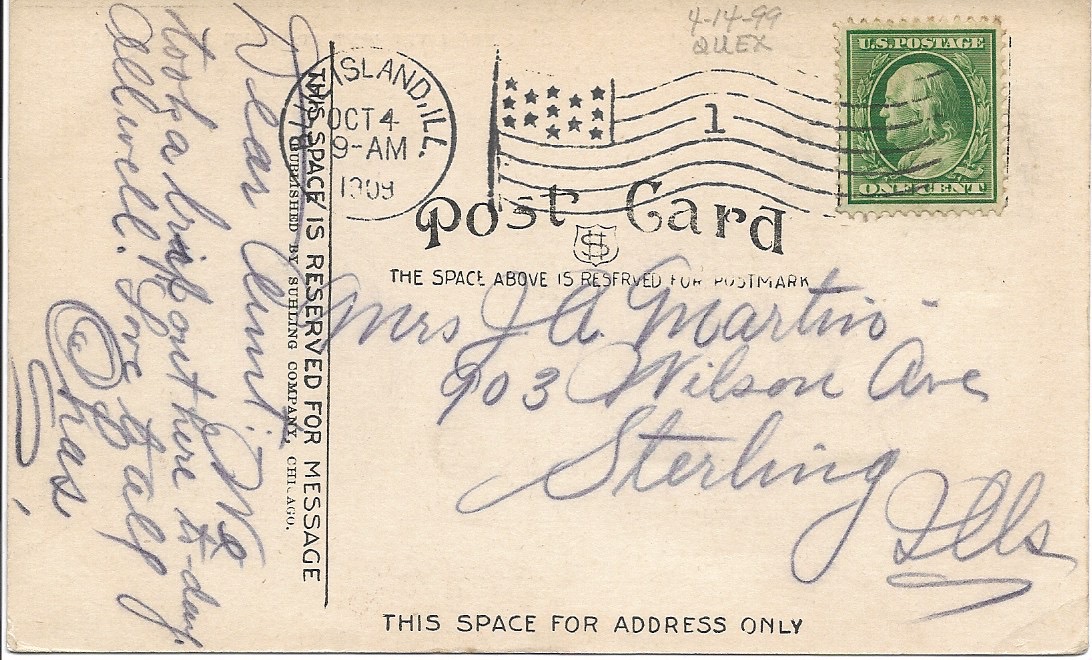 4-14-99
QUEX
U.S. POSTAGE
ONE CENT
ISLAND, ILL.
OCT 4
9-AM
1909
1
Post Card
THE SPACE ABOVE IS RESERVED FOR POSTMARK
THIS SPACE IS RESERVED FOR MESSAGE
PUBLISHED BY SUHLING COMPANY, CHICAGO.
Dear Aunt, We
took a trip out here to-day.
All well. Love to all
Chas.
Mrs J A. Martin
903 Wilson Ave
Sterling
Ills
THIS SPACE FOR ADDRESS ONLY